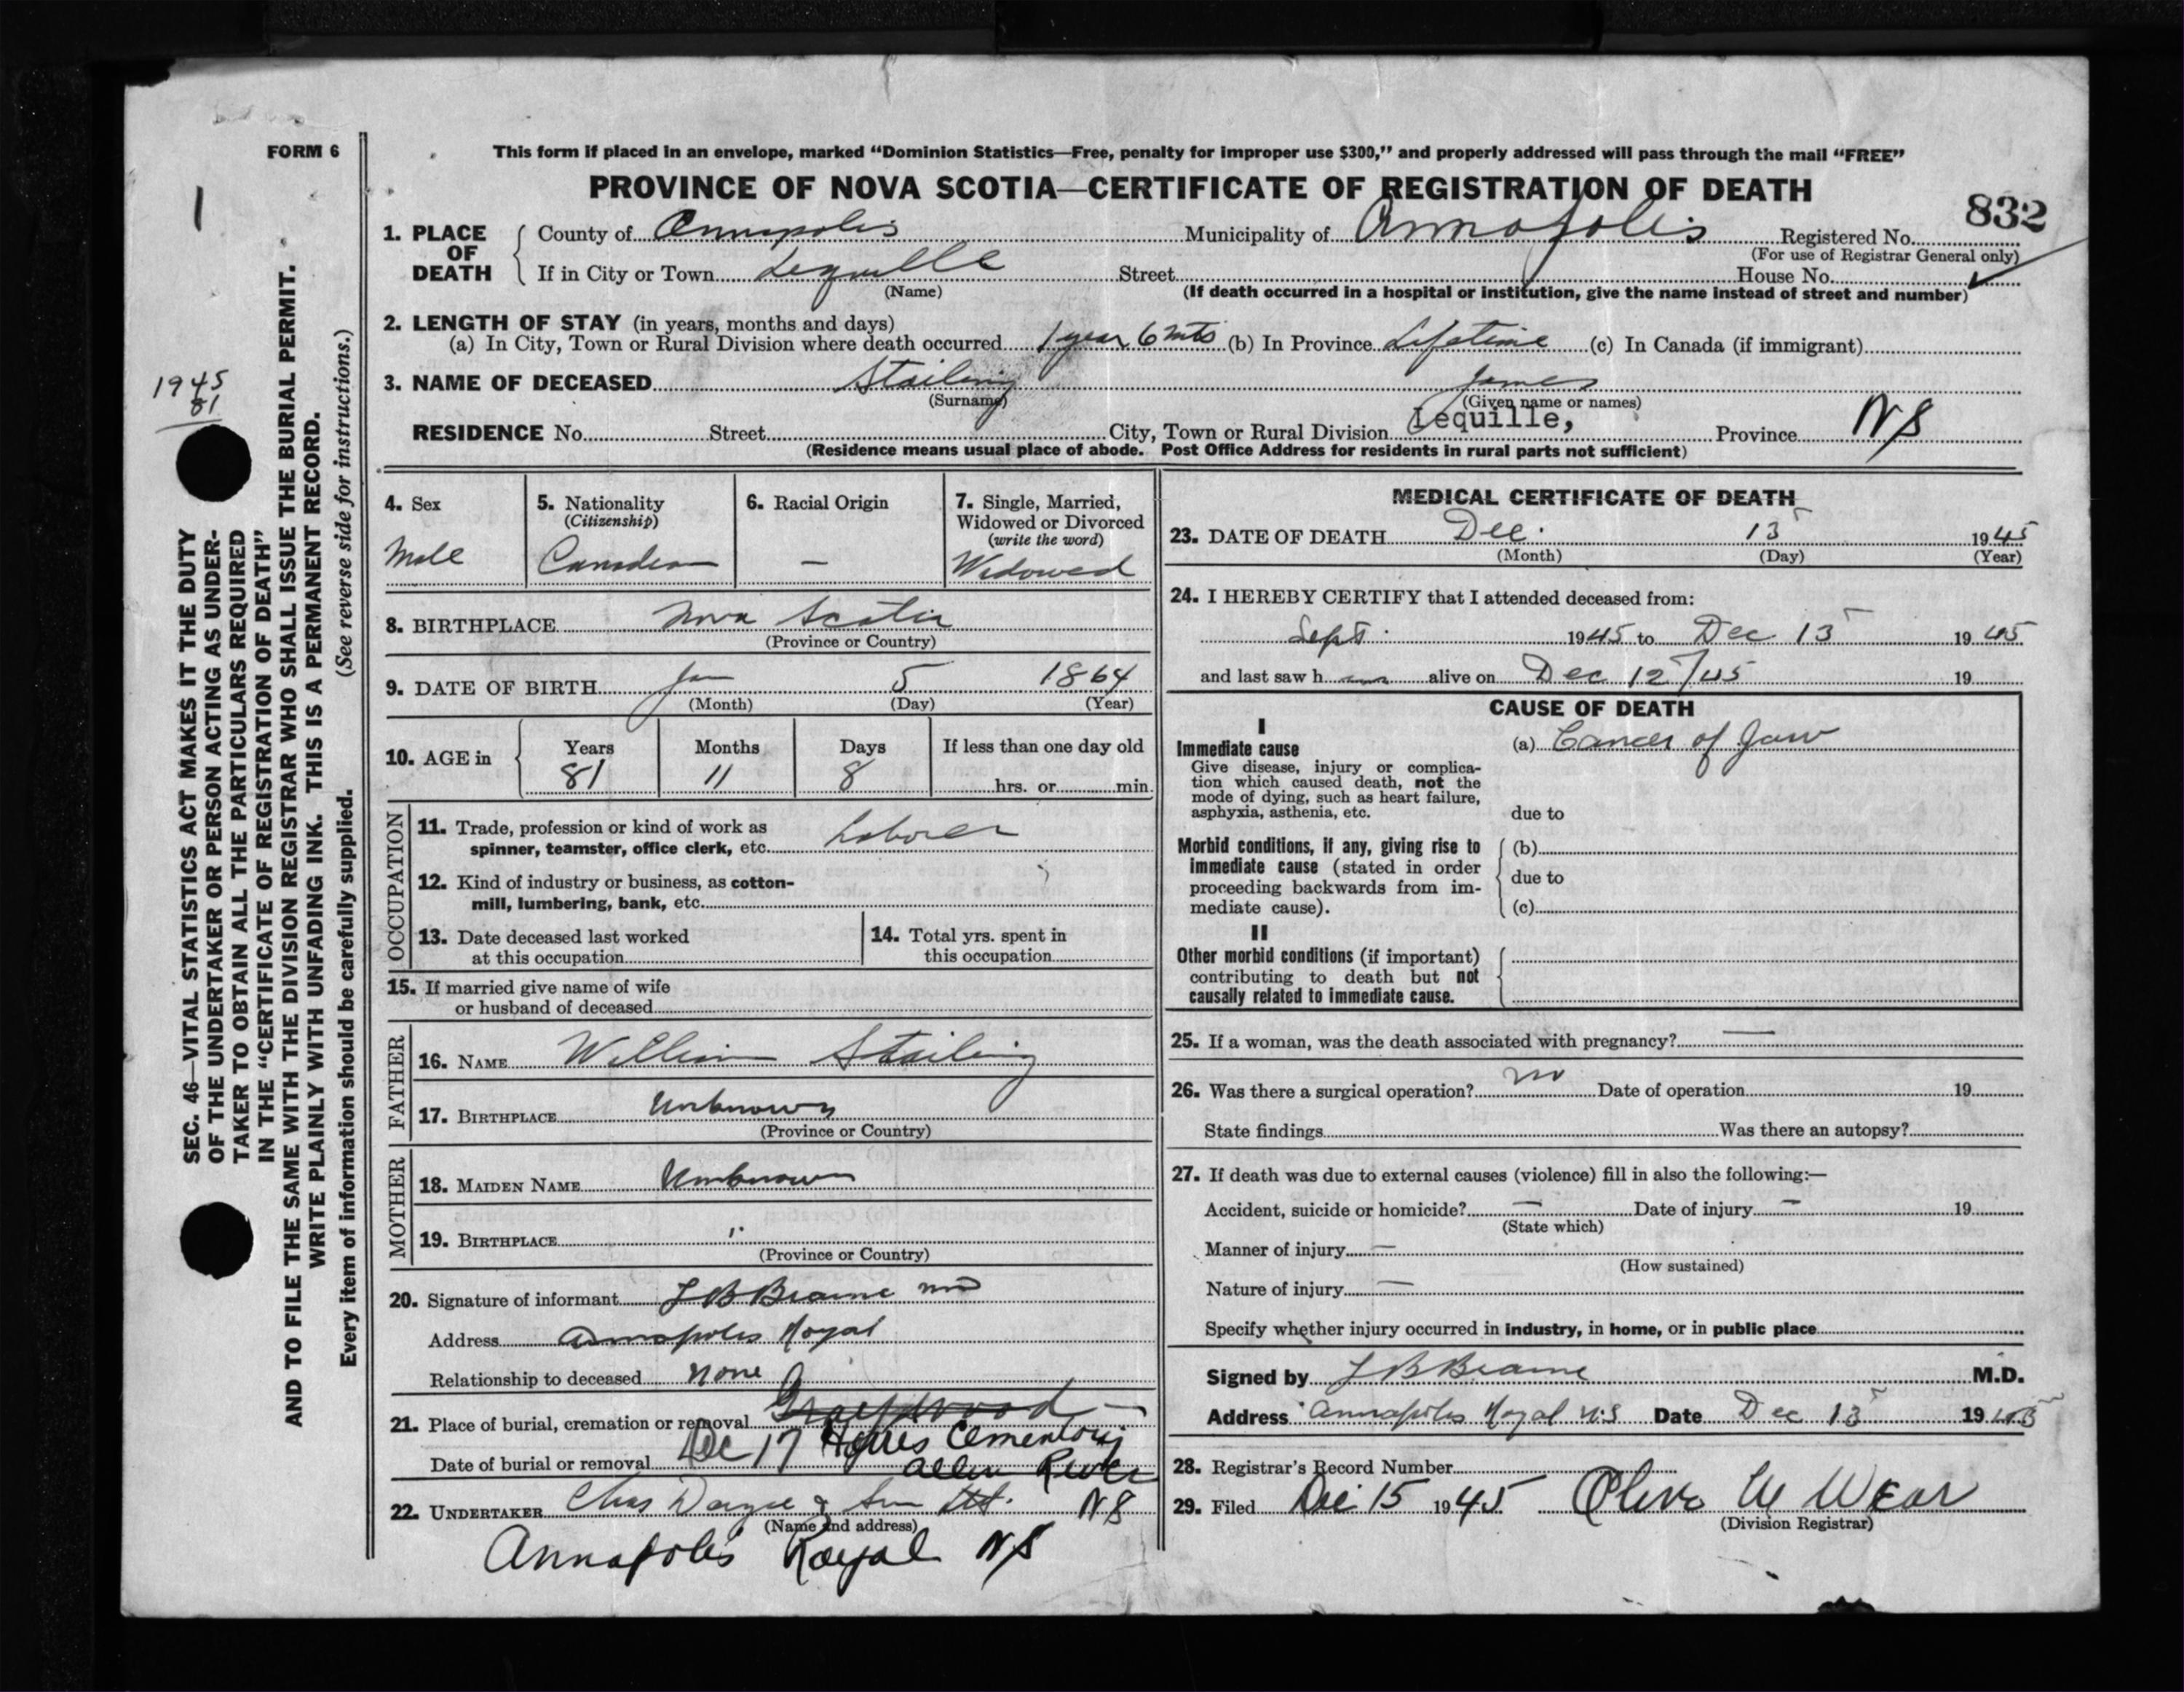 FORM 6
1
1945
81
SEC. 46—VITAL STATISTICS ACT MAKES IT THE DUTY
OF THE UNDERTAKER OR PERSON ACTING AS UNDER-
TAKER TO OBTAIN ALL THE PARTICULARS REQUIRED
IN THE "CERTIFICATE OF REGISTRATION OF DEATH"
AND TO FILE THE SAME WITH THE DIVISION REGISTRAR WHO SHALL ISSUE THE BURIAL PERMIT.
WRITE PLAINLY WITH UNFADING INK. THIS IS A PERMANENT RECORD.
Every item of information should be carefully supplied. (See reverse side for instructions.)
This form if placed in an envelope, marked "Dominion Statistics—Free, penalty for improper use $300," and properly addressed will pass through the mail "FREE"
PROVINCE OF NOVA SCOTIA—CERTIFICATE OF REGISTRATION OF DEATH
832
1. PLACE OF DEATH County of Annapolis Municipality of Annapolis Registered No.
(For use of Registrar General only)
If in City or Town Lequille Street House No.
(Name) (If death occurred in a hospital or institution, give the name instead of street and number)
2. LENGTH OF STAY (in years, months and days)
(a) In City, Town or Rural Division where death occurred 1 year 6 mts (b) In Province Lifetime (c) In Canada (if immigrant)
3. NAME OF DECEASED Stailing James
(Surname) (Given name or names)
RESIDENCE No. Street City, Town or Rural Division Lequille, Province NS
(Residence means usual place of abode. Post Office Address for residents in rural parts not sufficient)
4. Sex
Male
5. Nationality
(Citizenship)
Canadian
6. Racial Origin
—
7. Single, Married,
Widowed or Divorced
(write the word)
Widowed
8. BIRTHPLACE Nova Scotia
(Province or Country)
9. DATE OF BIRTH Jan 5 1864
(Month) (Day) (Year)
10. AGE in Years Months Days If less than one day old
81 11 8 hrs. or min.
OCCUPATION
11. Trade, profession or kind of work as
spinner, teamster, office clerk, etc. Laborer
12. Kind of industry or business, as cotton-
mill, lumbering, bank, etc.
13. Date deceased last worked
at this occupation
14. Total yrs. spent in
this occupation
15. If married give name of wife
or husband of deceased
FATHER
16. NAME William Stailing
17. BIRTHPLACE Unknown
(Province or Country)
MOTHER
18. MAIDEN NAME Unknown
19. BIRTHPLACE "
(Province or Country)
20. Signature of informant L B Braine MD
Address Annapolis Royal
Relationship to deceased None
21. Place of burial, cremation or removal Graywood —
Date of burial or removal Dec 17 Cementory
Allen River
22. UNDERTAKER Chas & Son NS
(Name and address)
Annapolis Royal NS
MEDICAL CERTIFICATE OF DEATH
23. DATE OF DEATH Dec. 13 1945
(Month) (Day) (Year)
24. I HEREBY CERTIFY that I attended deceased from:
Sept. 1945 to Dec 13 1945
and last saw h im alive on Dec 12/45 19
CAUSE OF DEATH
I
Immediate cause (a) Cancer of Jaw
Give disease, injury or complica-
tion which caused death, not the
mode of dying, such as heart failure,
asphyxia, asthenia, etc. due to
Morbid conditions, if any, giving rise to (b)
immediate cause (stated in order
proceeding backwards from im- due to
mediate cause). (c)
II
Other morbid conditions (if important)
contributing to death but not
causally related to immediate cause.
25. If a woman, was the death associated with pregnancy? —
26. Was there a surgical operation? no Date of operation 19
State findings Was there an autopsy?
27. If death was due to external causes (violence) fill in also the following:—
Accident, suicide or homicide? — Date of injury — 19
(State which)
Manner of injury —
(How sustained)
Nature of injury —
Specify whether injury occurred in industry, in home, or in public place
Signed by L B Braine M.D.
Address Annapolis Royal N.S Date Dec 13 1945
28. Registrar's Record Number
29. Filed Dec 15 1945 Olive W Wear
(Division Registrar)